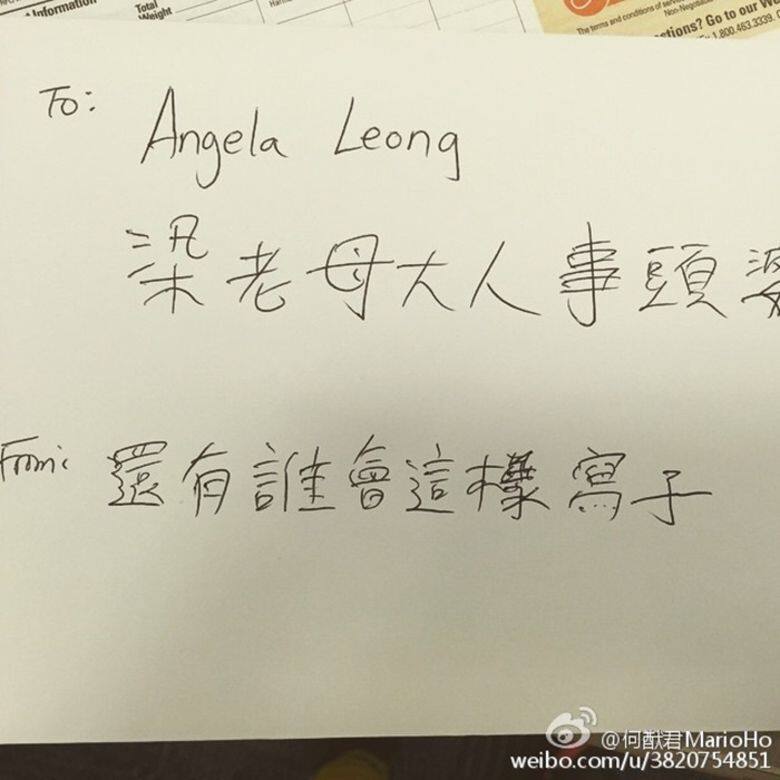 Information
Total
Weight
The terms and conditions of
Non-Negotia
stions? Go to our We
1.800.463.3339.
To:
Angela Leong
梁老母大人事頭婆
From:
還有誰會這樣寫子
@何猷君MarioHo
weibo.com/u/3820754851